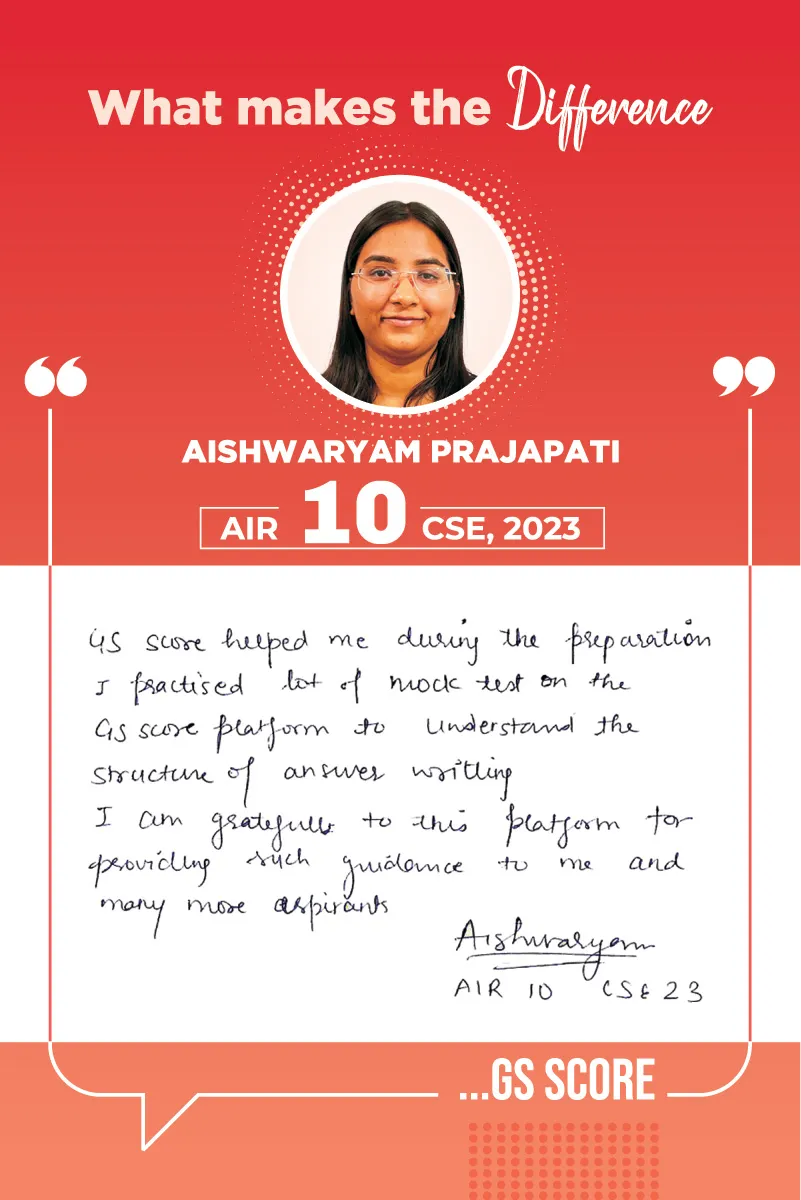 What makes the Difference
“
”
AISHWARYAM PRAJAPATI
AIR 10 CSE, 2023
GS score helped me during the preparation
I practised lot of mock test on the
GS score platform to understand the
structure of answer writting
I am gratefull to this platform for
providing such guidance to me and
many more aspirants
Aishwaryam
AIR 10 CSE 23
...GS SCORE